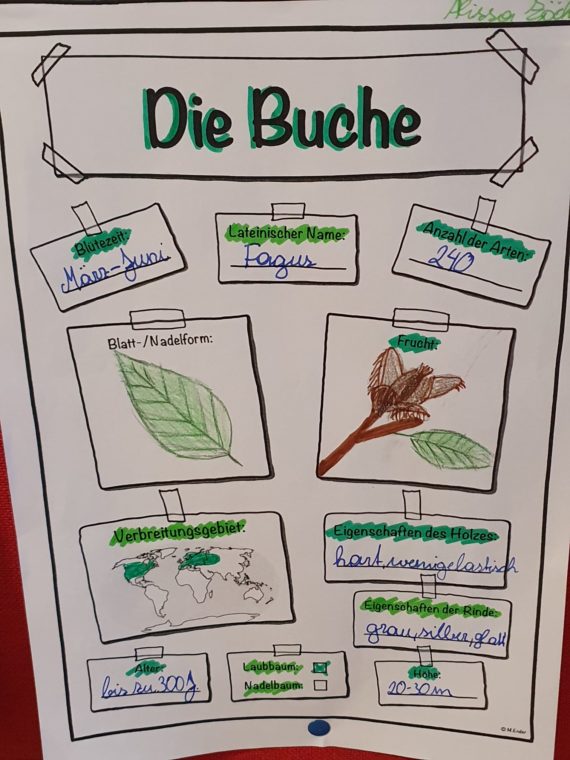 Alissa
Die Buche
Blütezeit:
März-Juni
Lateinischer Name:
Fagus
Anzahl der Arten:
240
Blatt-/Nadelform:
Frucht:
Verbreitungsgebiet:
Eigenschaften des Holzes:
hart, wenig elastisch
Eigenschaften der Rinde:
grau, silber, glatt
Alter:
bis zu 300 J.
Laubbaum:
Nadelbaum:
Höhe:
20-30m
© M.Ender